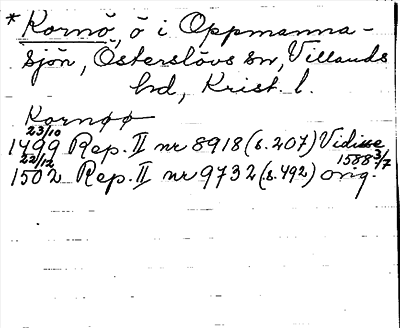 * Kornö, ö i Oppmanna-
sjön, Österslövs sn, Villands
hd, Krist. l.
Kornøø
23/10
1499 Rep. II nr 8918 (s. 207) Vidisse
1588 3/7
22/12
1502 Rep. II nr 9732 (s. 492) orig.